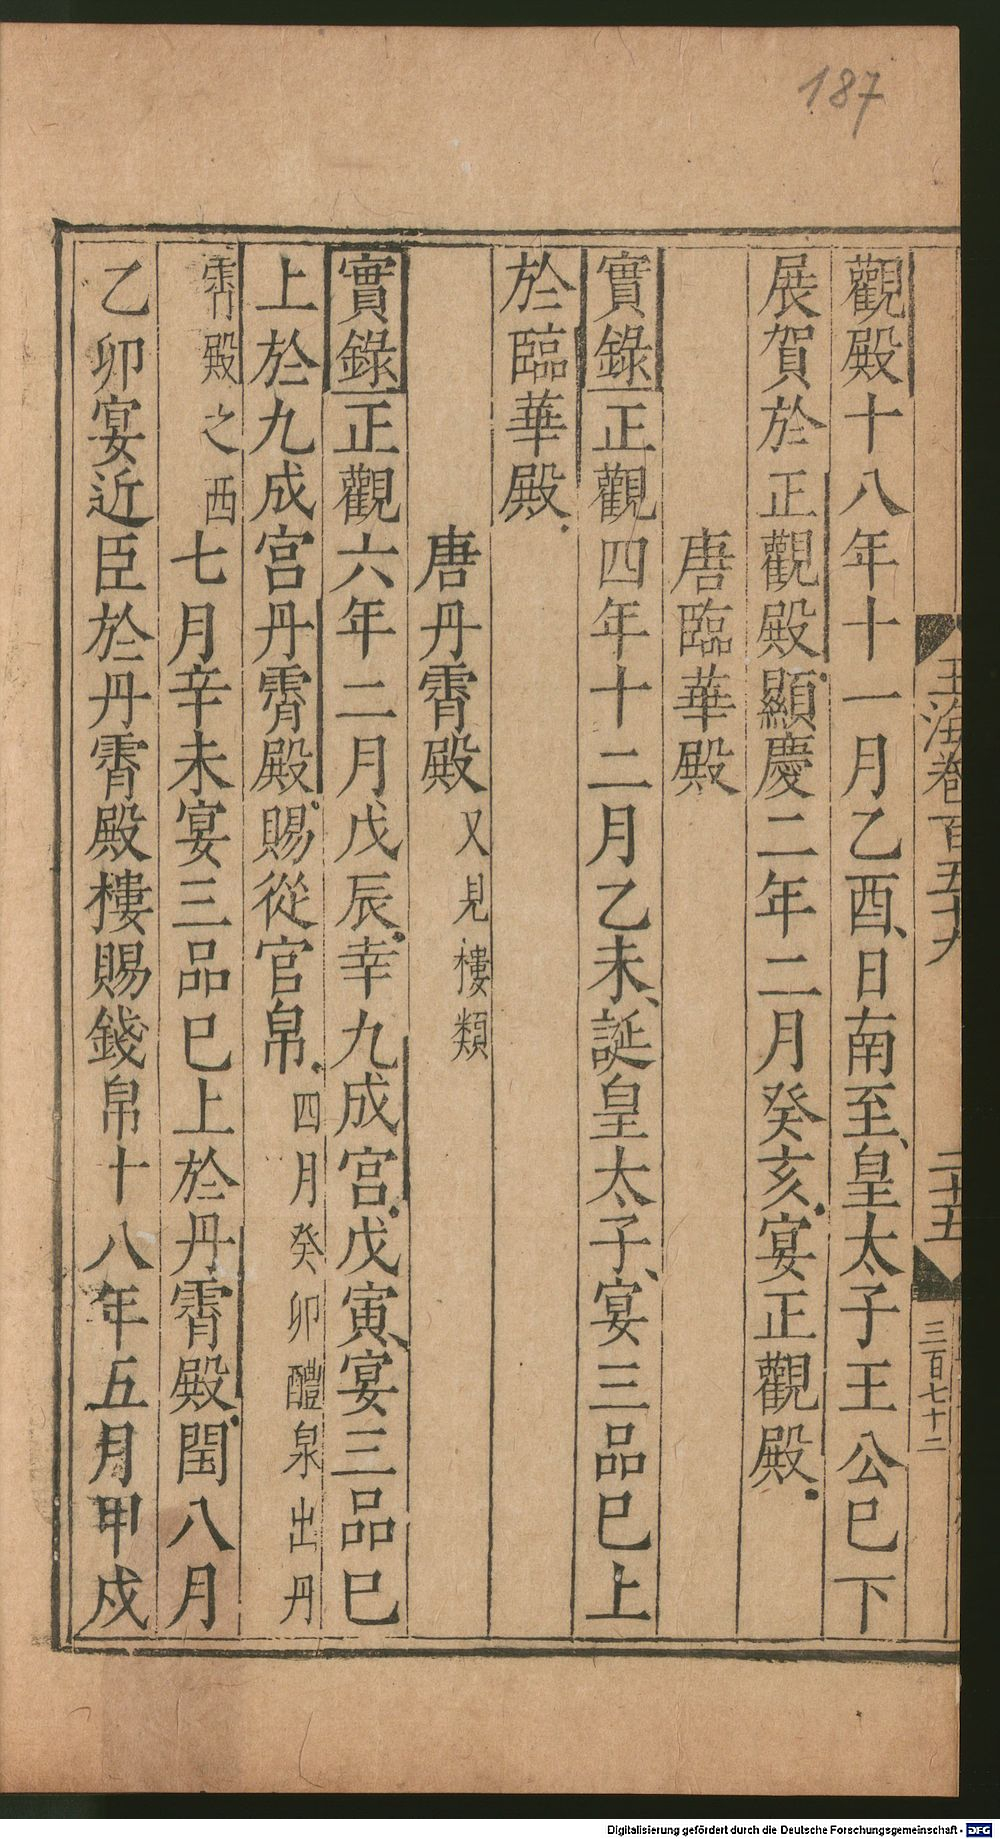 187
玉海卷百五十九
二十五
三百七十二
觀殿十八年十一月乙酉、日南至、皇太子王公巳下
展賀於正觀殿顯慶二年二月癸亥宴正觀殿
唐臨華殿
實錄正觀四年十二月乙未、誕皇太子、宴三品巳上
於臨華殿
唐丹霄殿又見樓類
實錄正觀六年二月戊辰幸九成宮戊寅、宴三品巳
上於九成宮丹霄殿賜從官帛四月癸卯醴泉出丹
霄殿之西七月辛未宴三品巳上於丹霄殿閏八月
乙卯宴近臣於丹霄殿樓賜錢帛十八年五月甲戌
Digitalisierung gefördert durch die Deutsche Forschungsgemeinschaft - DFG